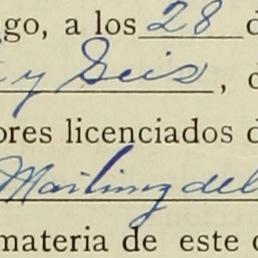 go, a los 28 d
y Seis, d
ores licenciados d
Martinez del
materia de este c